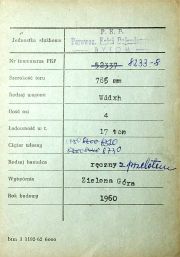 P. K. P.
Jednostka służbowa
Nr inwentarza PKP 52337 8233-8
Szerokość toru 785 mm
Rodzaj wagonu Wddxh
Ilość osi 4
Ładowność w t. 17 ton
Ciężar własny 8730
Rodzaj hamulca ręczny z przelotem
Wytwórnia Zielona Góra
Rok budowy 1960